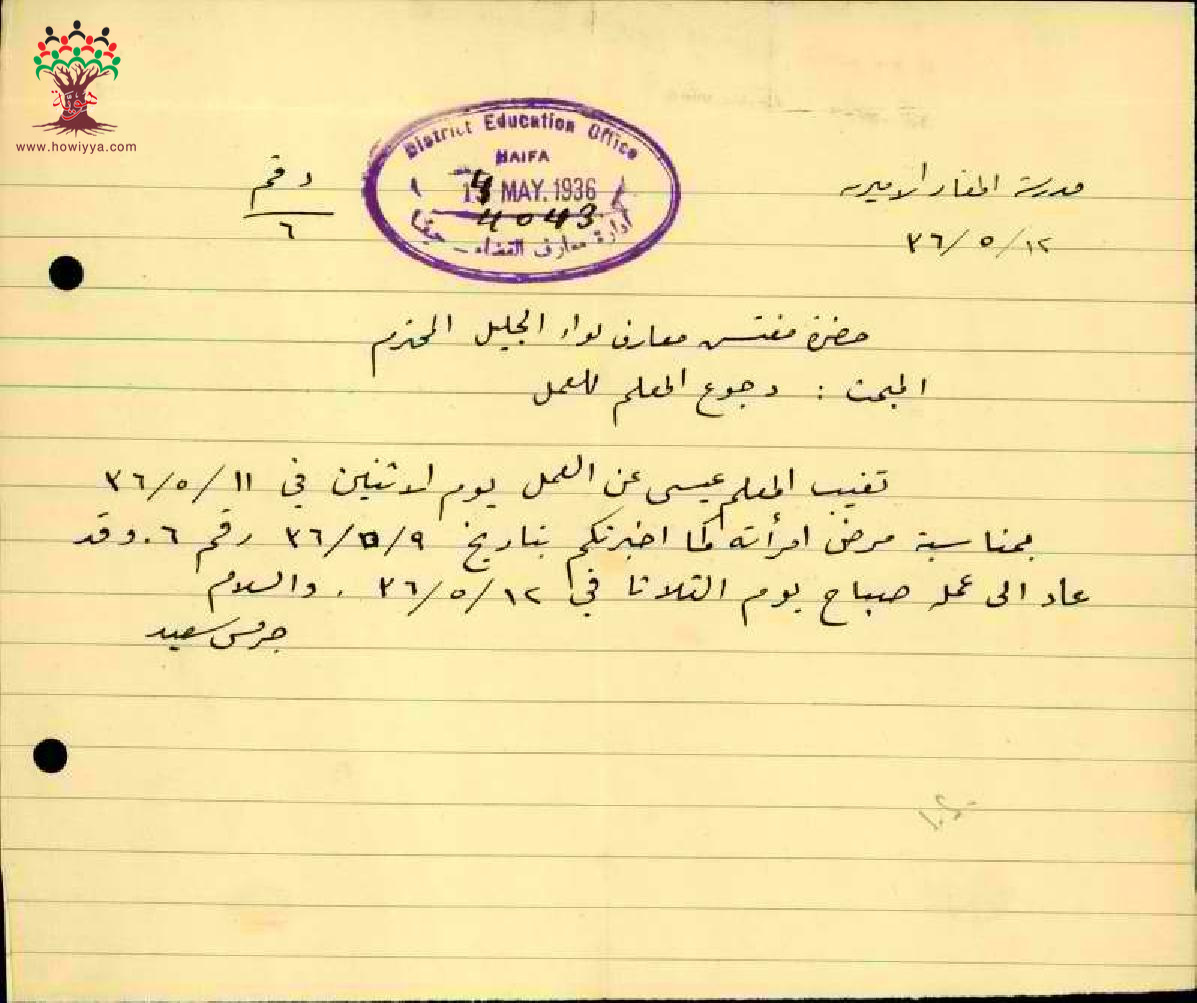 هوية
www.howiyya.com
District Education Office
HAIFA
MAY. 1936
4043
ادارة معارف القضاء - حيفا
مدرسة المغار الاميريه
١٢/ ٥ /٣٦
رقم
٦
حضرة مفتش معارف لواء الجليل المحترم
المبحث : رجوع المعلم للعمل
تغيب المعلم عيسى عن العمل يوم الاثنين في ١١/ ٥/ ٣٦
بمناسبة مرض امرأته كما اخبرتكم بتاريخ ٩/٥/ ٣٦ رقم ٦. وقد
عاد الى عمله صباح يوم الثلاثا في ١٢/ ٥/ ٣٦ . والسلام
جرس سعيد